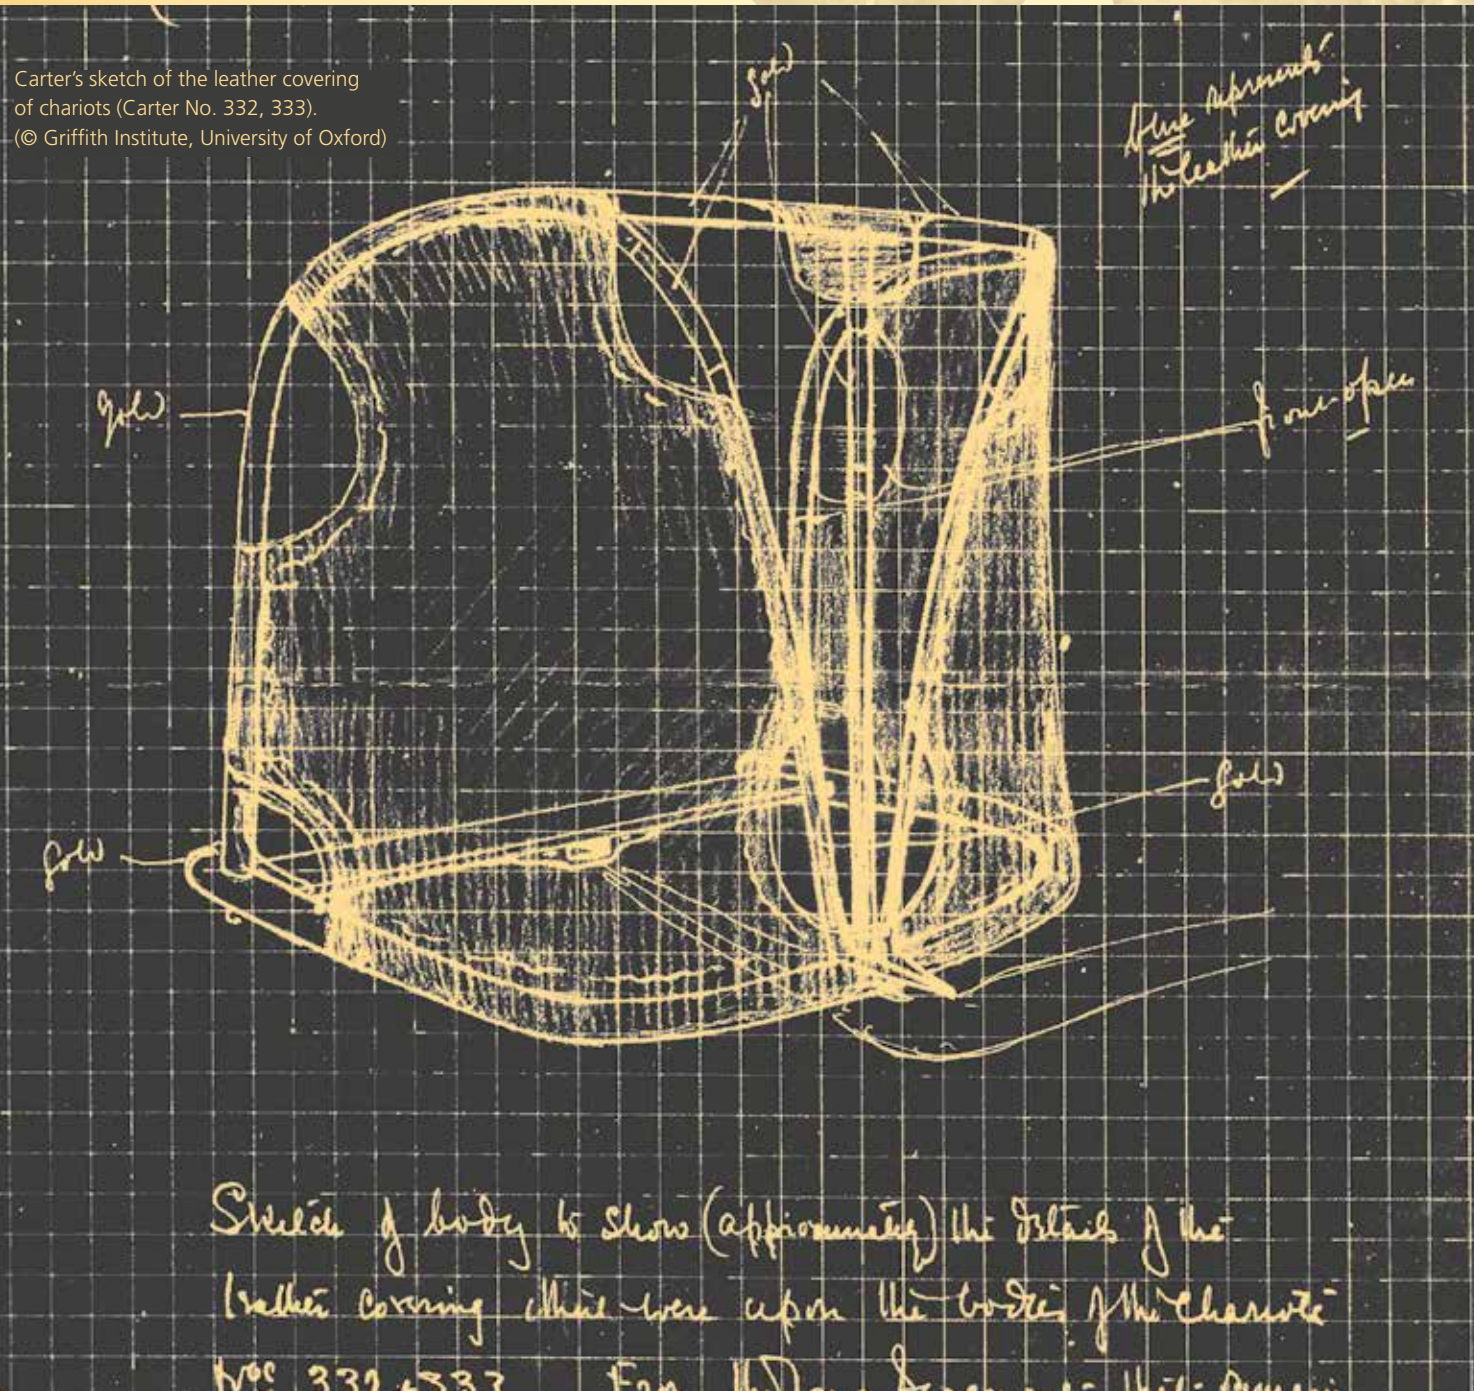 Carter's sketch of the leather covering
of chariots (Carter No. 332, 333).
(© Griffith Institute, University of Oxford)
gold
blue represents
the leather covering
gold
front open
gold
gold
Sketch of body to show (approximately) the details of the
leather covering that were upon the bodies of the Chariots
Nos 332 + 333 For